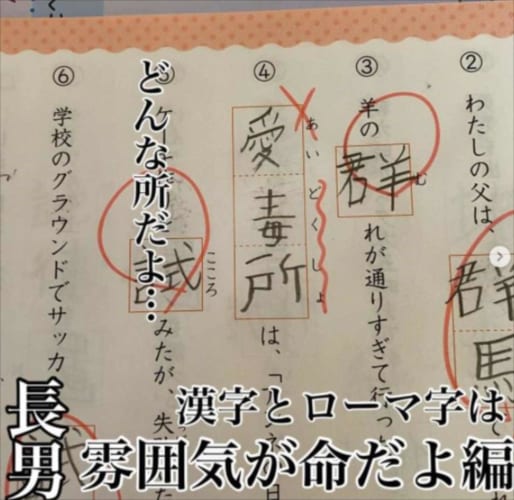 ② わたしの父は、
群馬
③ 羊の群れが通りすぎて行っ
む
④ 愛毒所は、「
あいどくしょ
試みたが、失
こころ
⑥ 学校のグラウンドでサッカ
どんな所だよ…
漢字とローマ字は
長男
雰囲気が命だよ編